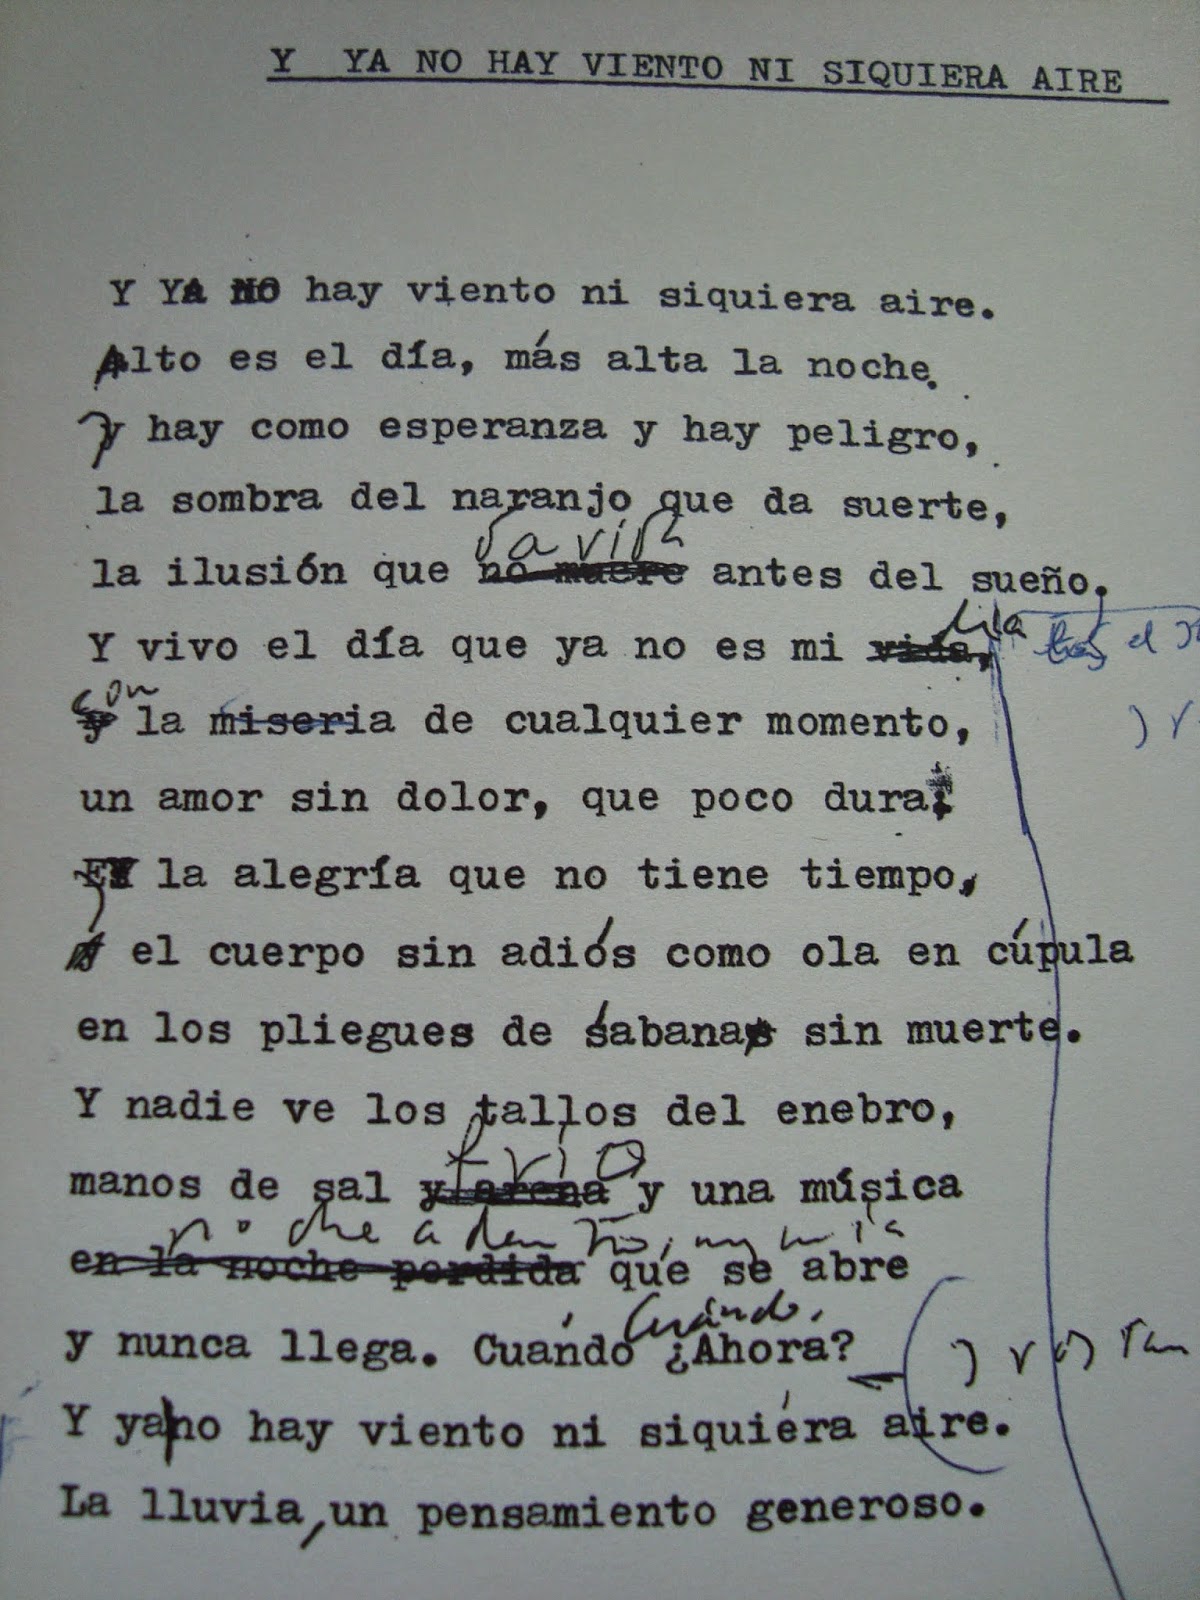 Y YA NO HAY VIENTO NI SIQUIERA AIRE
Y YA NO hay viento ni siquiera aire.
Alto es el día, más alta la noche.
y hay como esperanza y hay peligro,
la sombra del naranjo que da suerte,
la ilusión que no muere antes del sueño.
Y vivo el día que ya no es mi vida,
con
la miseria de cualquier momento,
un amor sin dolor, que poco dura.
la alegría que no tiene tiempo,
el cuerpo sin adiós como ola en cúpula
en los pliegues de sabanas sin muerte.
Y nadie ve los tallos del enebro,
frio
manos de sal y arena y una música
noche adentro,
en la noche perdida que se abre
Cuándo,
y nunca llega. Cuándo ¿Ahora?
Y ya no hay viento ni siquiera aire.
La lluvia, un pensamiento generoso.